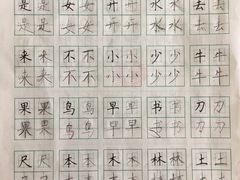 是是 女女 开开 水水 去去
是是 女女 开开 水水 去去
来来 不不 小小 少少 牛牛
来来 不不 小小 少少 牛牛
果果 鸟鸟 早早 书书 刀刀
果果 鸟鸟 早早 书书 刀刀
尺尺 本本 木木 林林 土土
尺尺 本本 木木 林林 土土